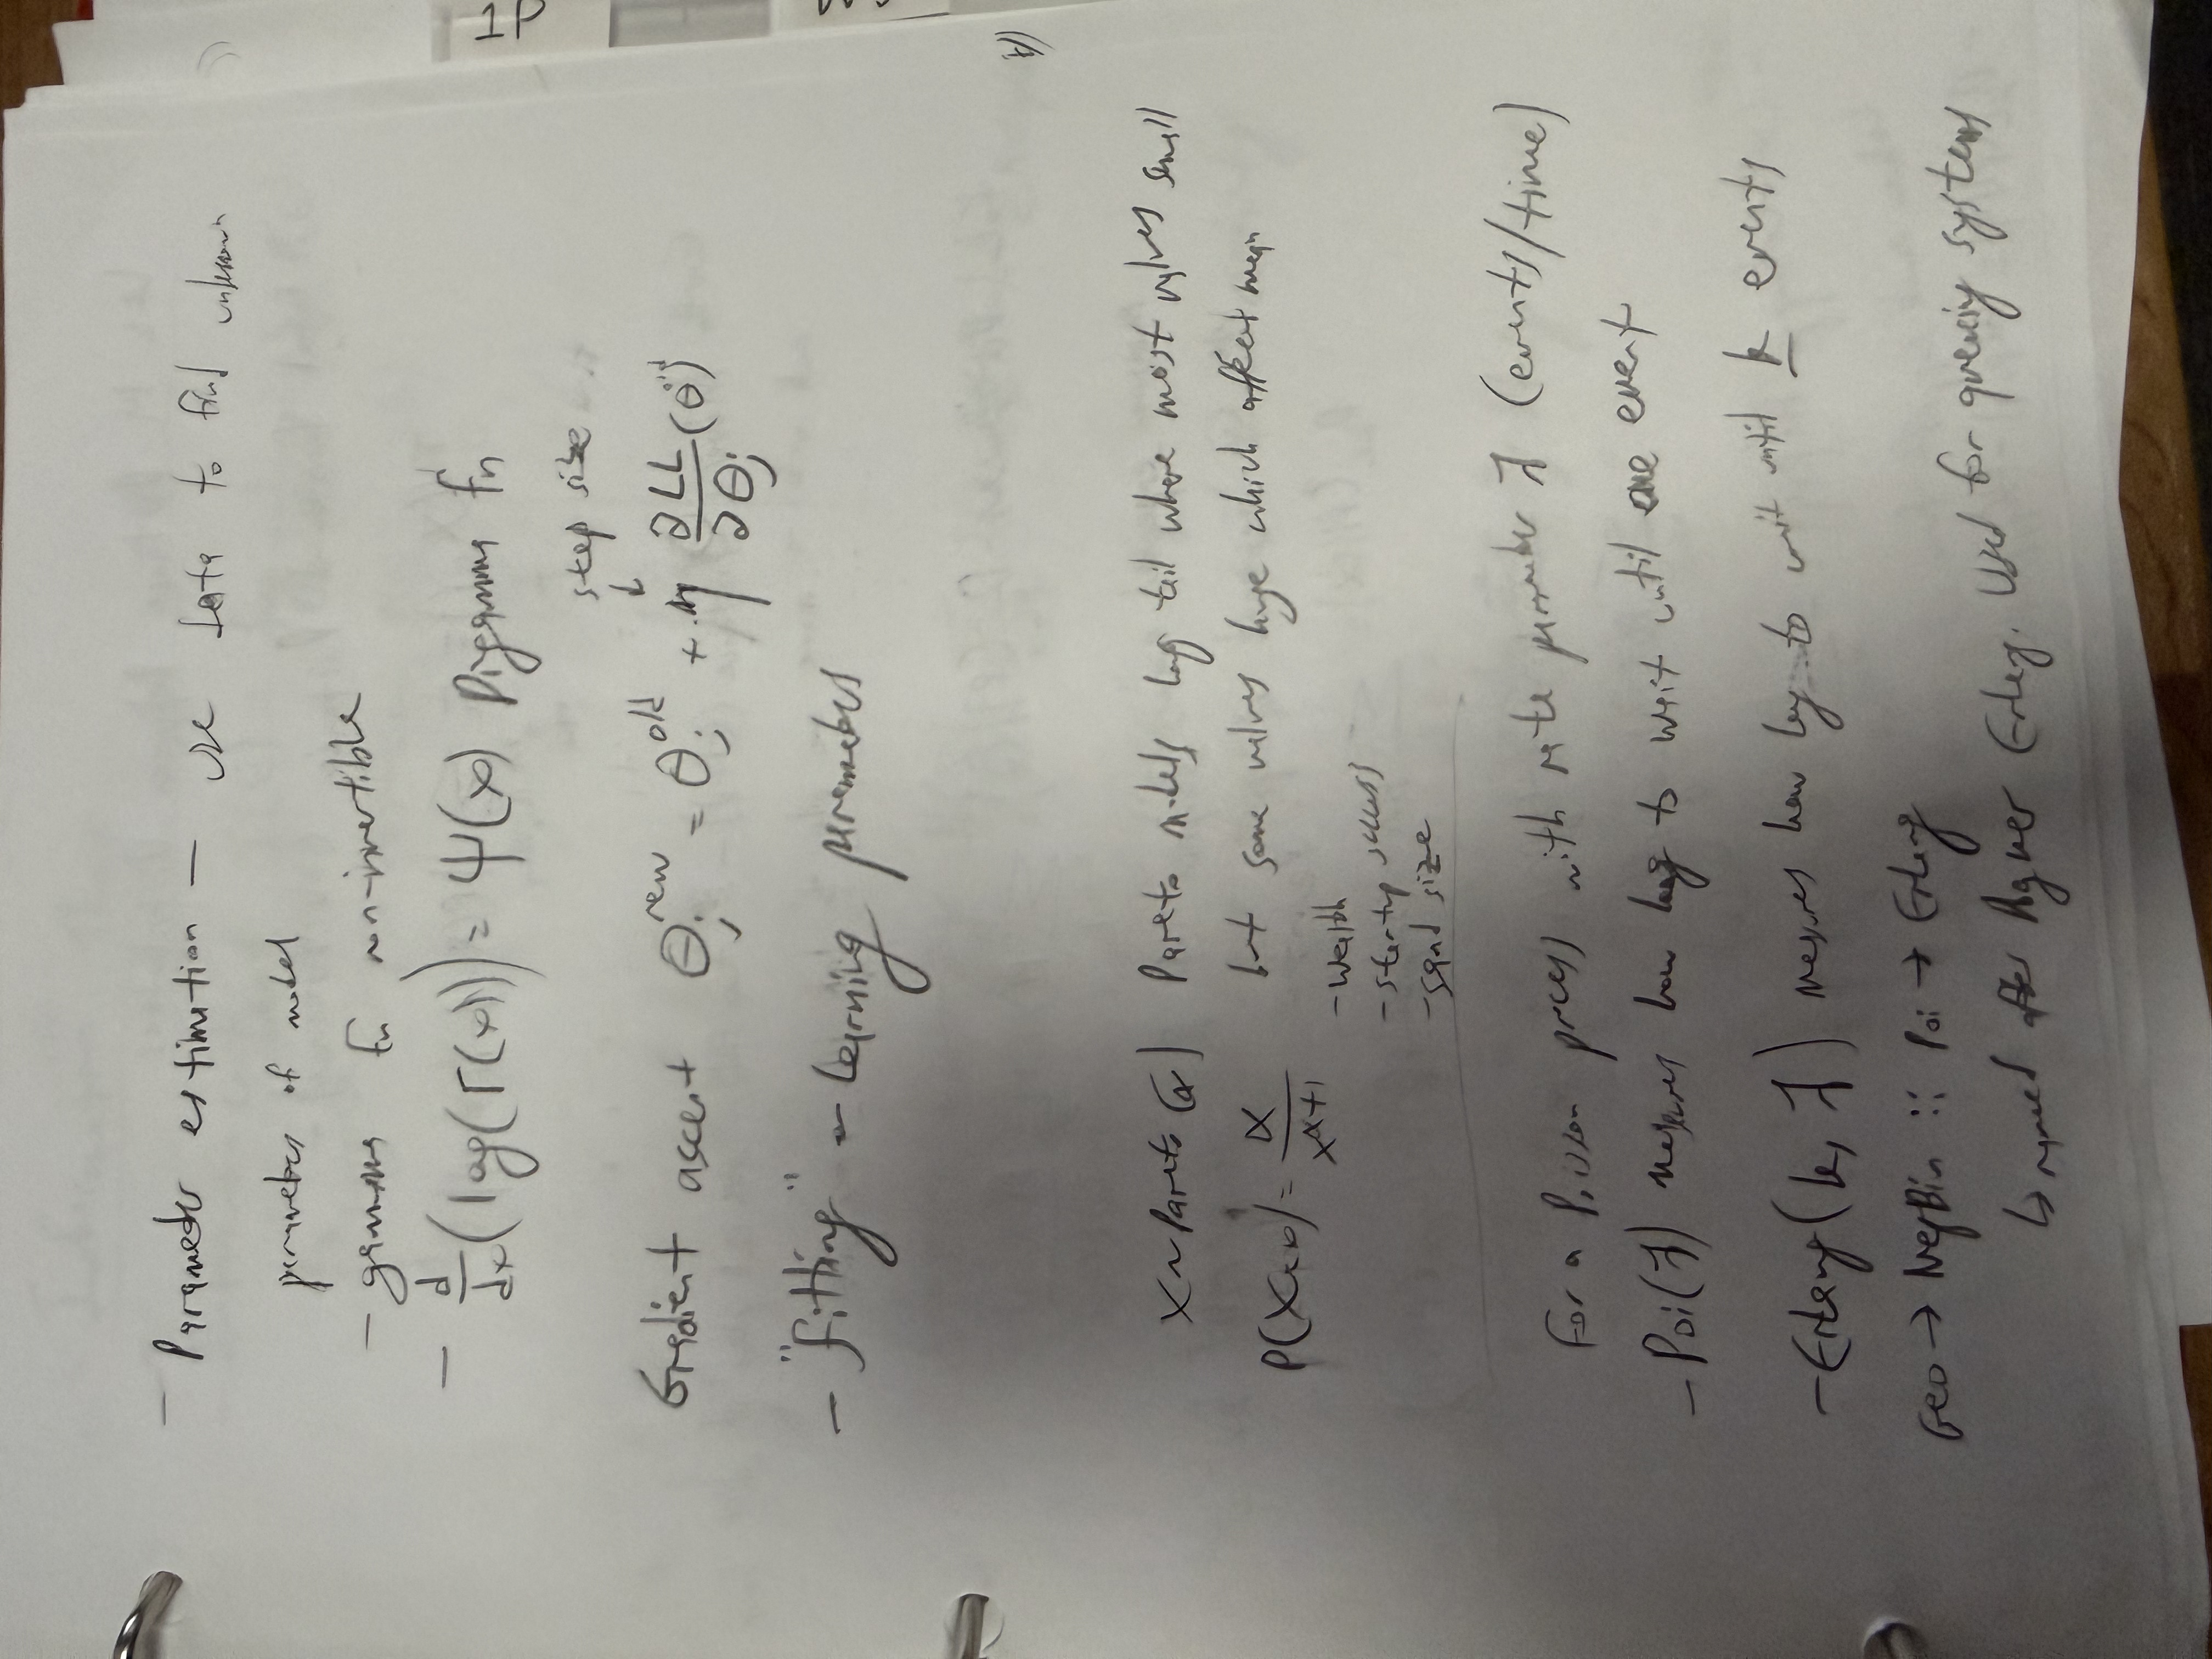 - Parameter estimation - use data to find unknown
parameters of model
- gamma fn non-invertible
- d/dx (log(Γ(x))) = Ψ(x) Digamma fn
step size
↓
Gradient ascent θ_j^new = θ_j^old + η ∂LL/∂θ_j (θ^old)
- "fitting" - learning parameters
X ~ Pareto(α) Pareto models long tail where most values small
but some values huge which affect mean
P(X=x) = α/x^(α+1)
- wealth
- startup success
- sand size
For a Poisson process with rate parameter λ (events/time)
- Poi(λ) measures how long to wait until one event
- Erlang(k, λ) measures how long to wait until k events
Geo → NegBin :: Poi → Erlang
↳ named after Agner Erlang. Used for queueing systems